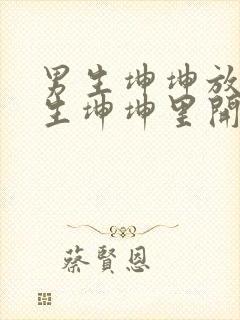 男生坤坤放
生坤坤里開
蔡賢恩